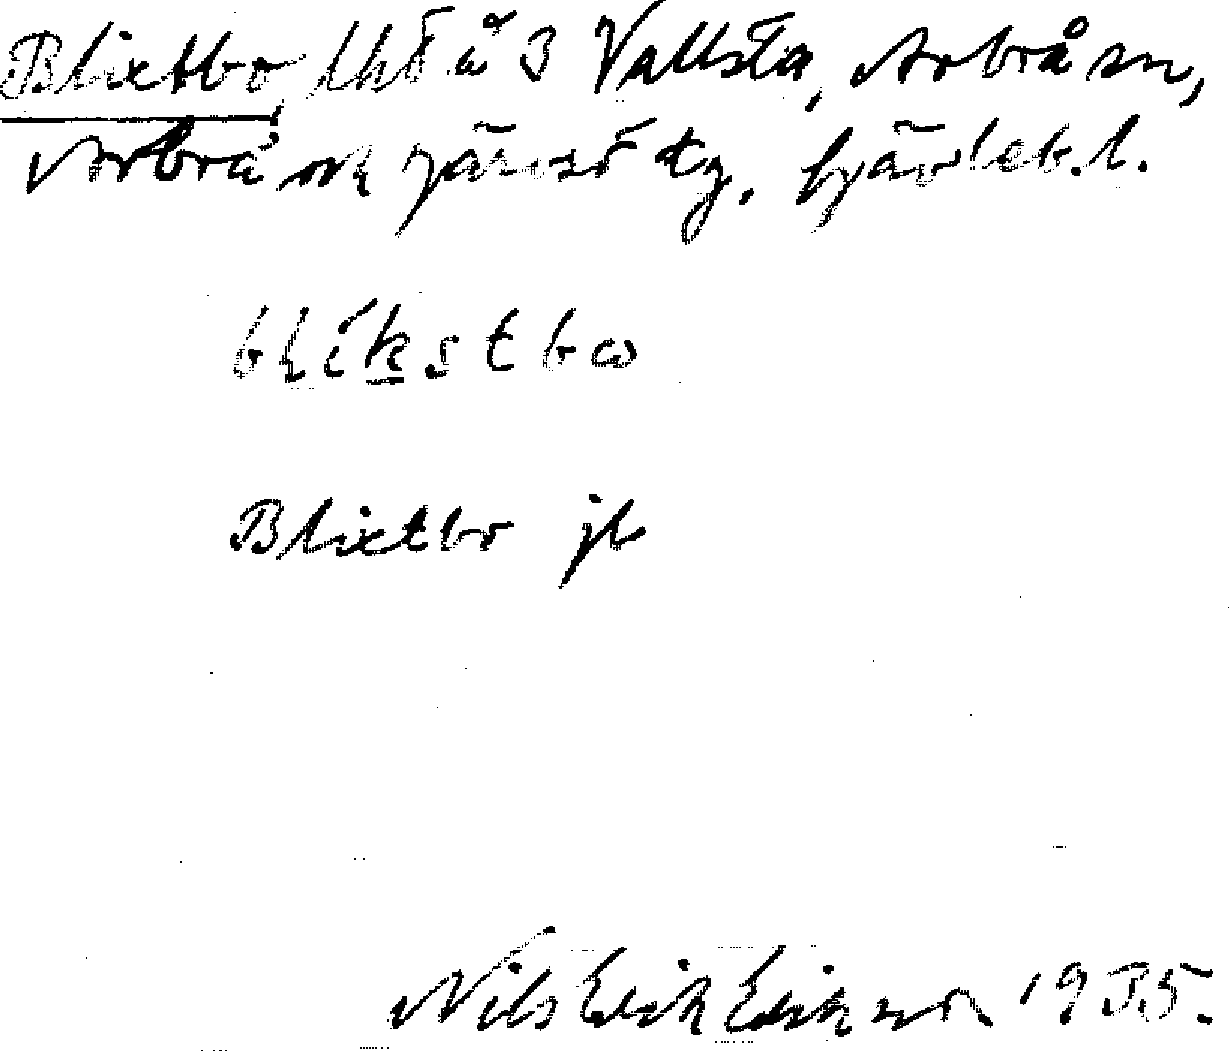 Blixtbo, lht å 3 Vallsta, Arbrå sn,
Arbrå ock Järvsö tg, Gävleb. l.
blikstbω
Blixtbo jb
Nils Erik Eriksson 1935.